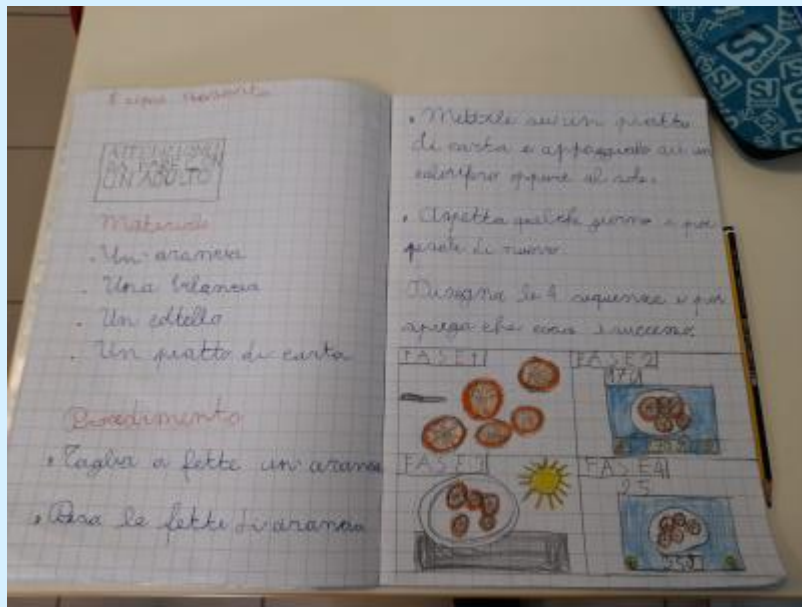 ATTENZIONE
DA FARE CON
UN ADULTO
Materiale
. Un arancia
. Una bilancia
. Un coltello
. Un piatto di carta
Procedimento
. Taglia a fette un arancia
. Pesa le fette di arancia
. Mettile su un piatto
di carta e appoggialo su un
calorifero oppure al sole.
. Aspetta qualche giorno e poi
pesale di nuovo.
Disegna le 4 sequenze e poi
spiega che cosa è successo.
FASE 1
FASE 2
FASE 3
FASE 4
25